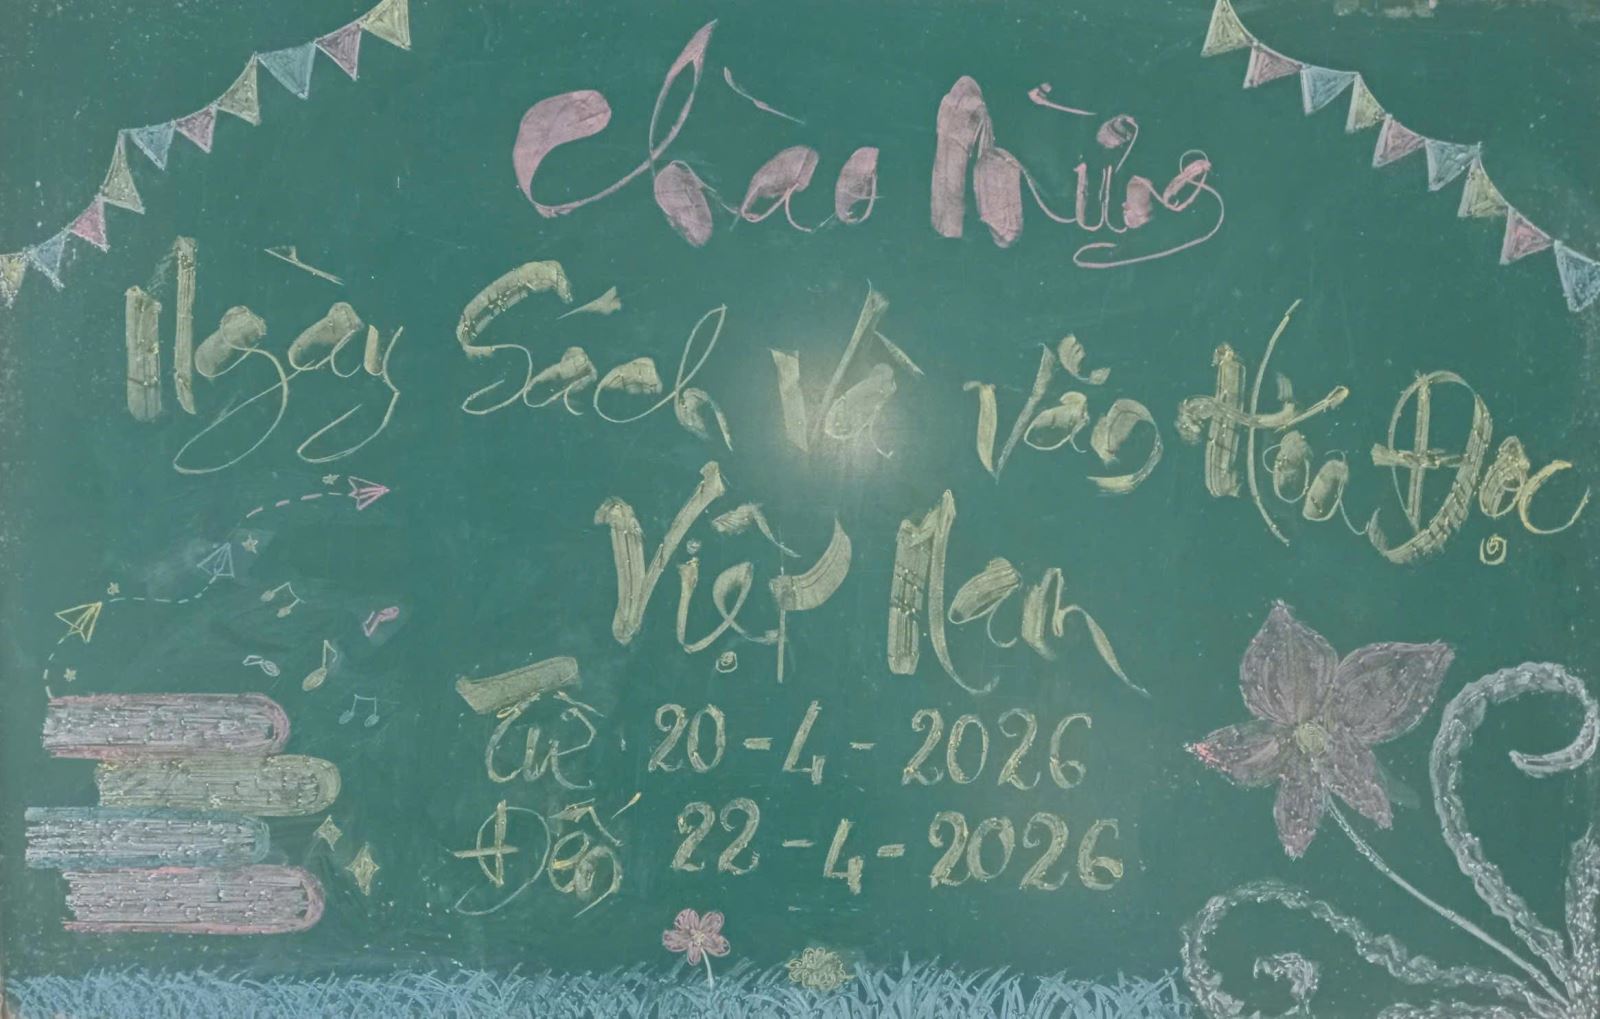 Chào Mừng
Ngày Sách Và Văn Hóa Đọc
Việt Nam
Từ 20-4-2026
Đến 22-4-2026